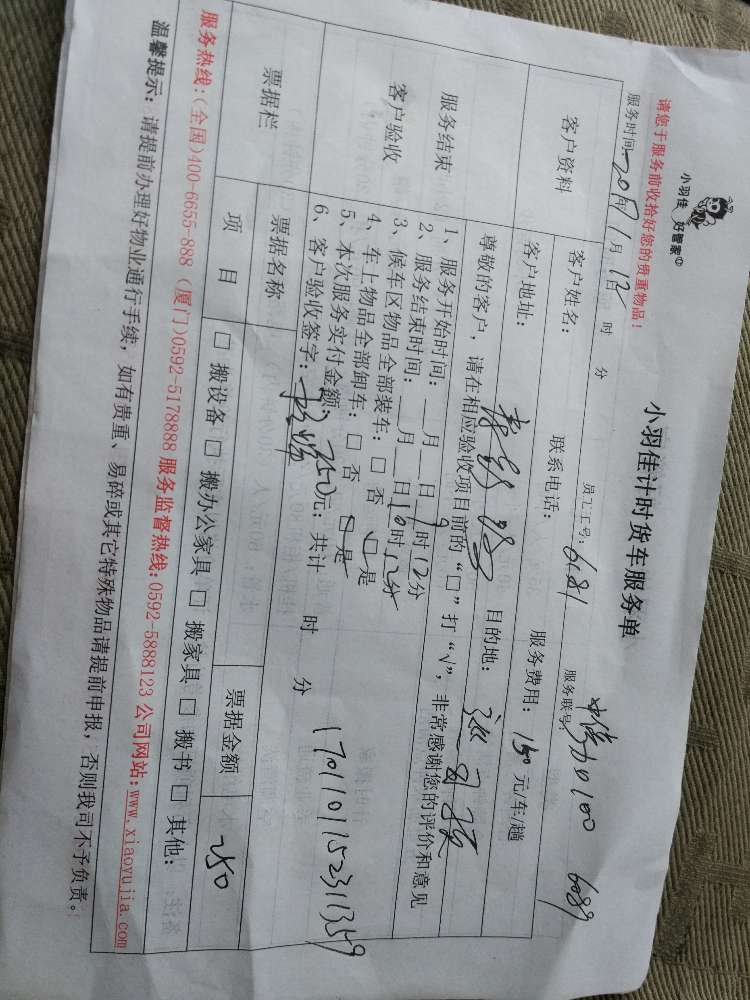 小羽佳 好管家
小羽佳计时货车服务单
请您于服务前收拾好您的贵重物品！
员工工号：6181
服务联号：
6089
服务时间：2017年1月12日 时 分
客户资料
客户姓名：
联系电话：
服务费用：150元/车/趟
客户地址：
目的地：
服务结束
客户验收
尊敬的客户，请在相应验收项目前的“□”打“√”，非常感谢您的评价和意见
1、服务开始时间：__月__日9时12分
2、服务结束时间：__月__日10时12分
3、候车区物品全部装车：□ 否 □ 是
4、车上物品全部卸车：□ 否 □ 是
5、本次服务实付金额：250元；共计 时 分
6、客户验收签字：
170110115231359
票据栏
票据名称
票据金额
250
项 目
□ 搬设备 □ 搬办公家具 □ 搬家具 □ 搬书 □ 其他：
服务热线：(全国)400-6655-888 (厦门)0592-5178888 服务监督热线：0592-5888123 公司网站：www.xiaoyujia.com
温馨提示：请提前办理好物业通行手续，如有贵重、易碎或其它特殊物品请提前申报，否则我司不予负责。